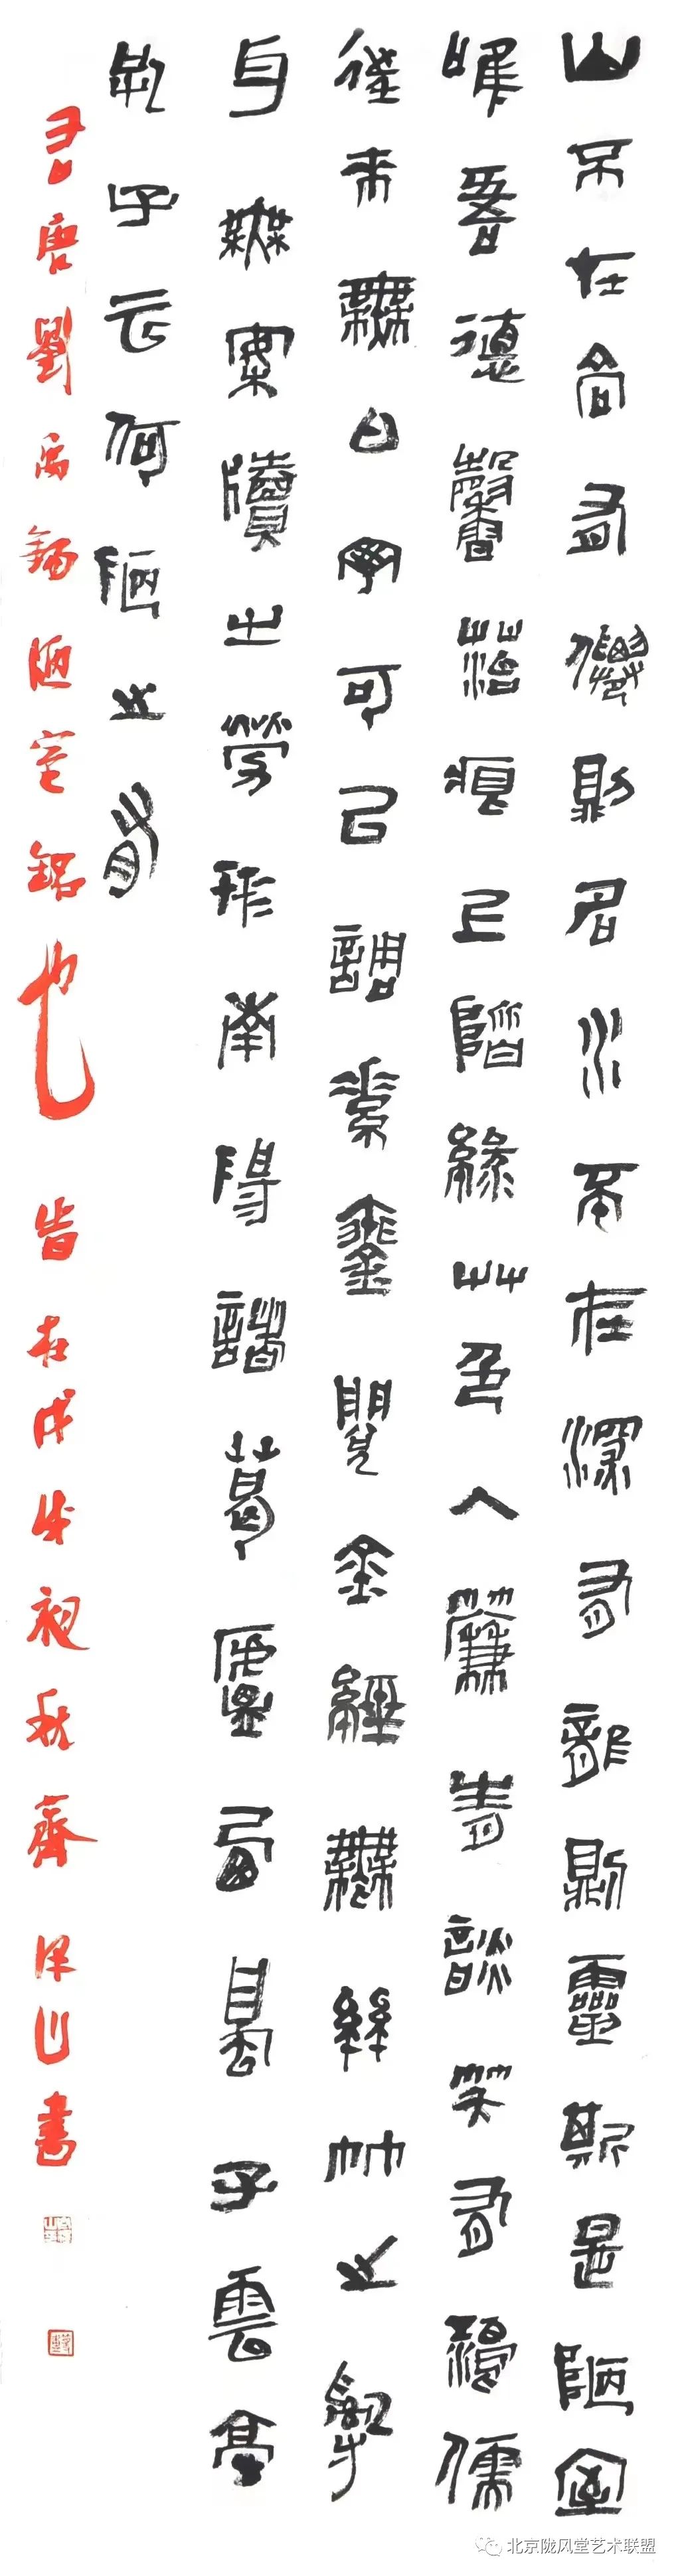 山不在高有僊則名水不在深有龍則靈斯是陋室
唯吾德馨苔痕上階緑艸色入簾青談笑有鴻儒
往来無白丁可以調素琴閱金經無絲竹之亂
耳無案牘之勞形南陽諸葛廬西蜀子雲亭
孔子云何陋之有
右唐劉禹錫陋室銘也 旹在戊戌秋齋山書
北京陇风堂艺术联盟